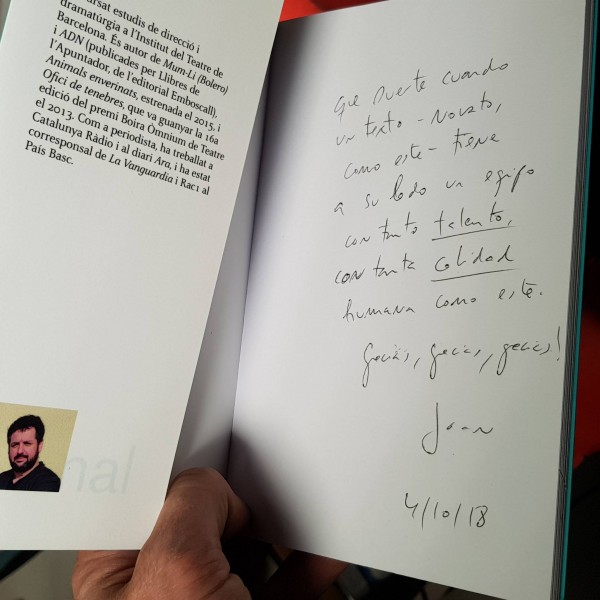 ursat estudis de direcció i
dramatúrgia a l'Institut del Teatre de
Barcelona. És autor de Mum-Li (Bolero)
i ADN (publicades per Llibres de
l'Apuntador, de l'editorial Emboscall),
Animals enverinats, estrenada el 2015, i
Ofici de tenebres, que va guanyar la 16a
edició del premi Boira Òmnium de Teatre
el 2013. Com a periodista, ha treballat a
Catalunya Ràdio i al diari Ara, i ha estat
corresponsal de La Vanguardia i Rac1 al
País Basc.
nal
Que suerte cuando
un texto - novato,
como este - tiene
a su lado un equipo
con tanto talento,
con tanta calidad
humana como este.
Gracias, gracias, gracias!
Joan
4/10/18